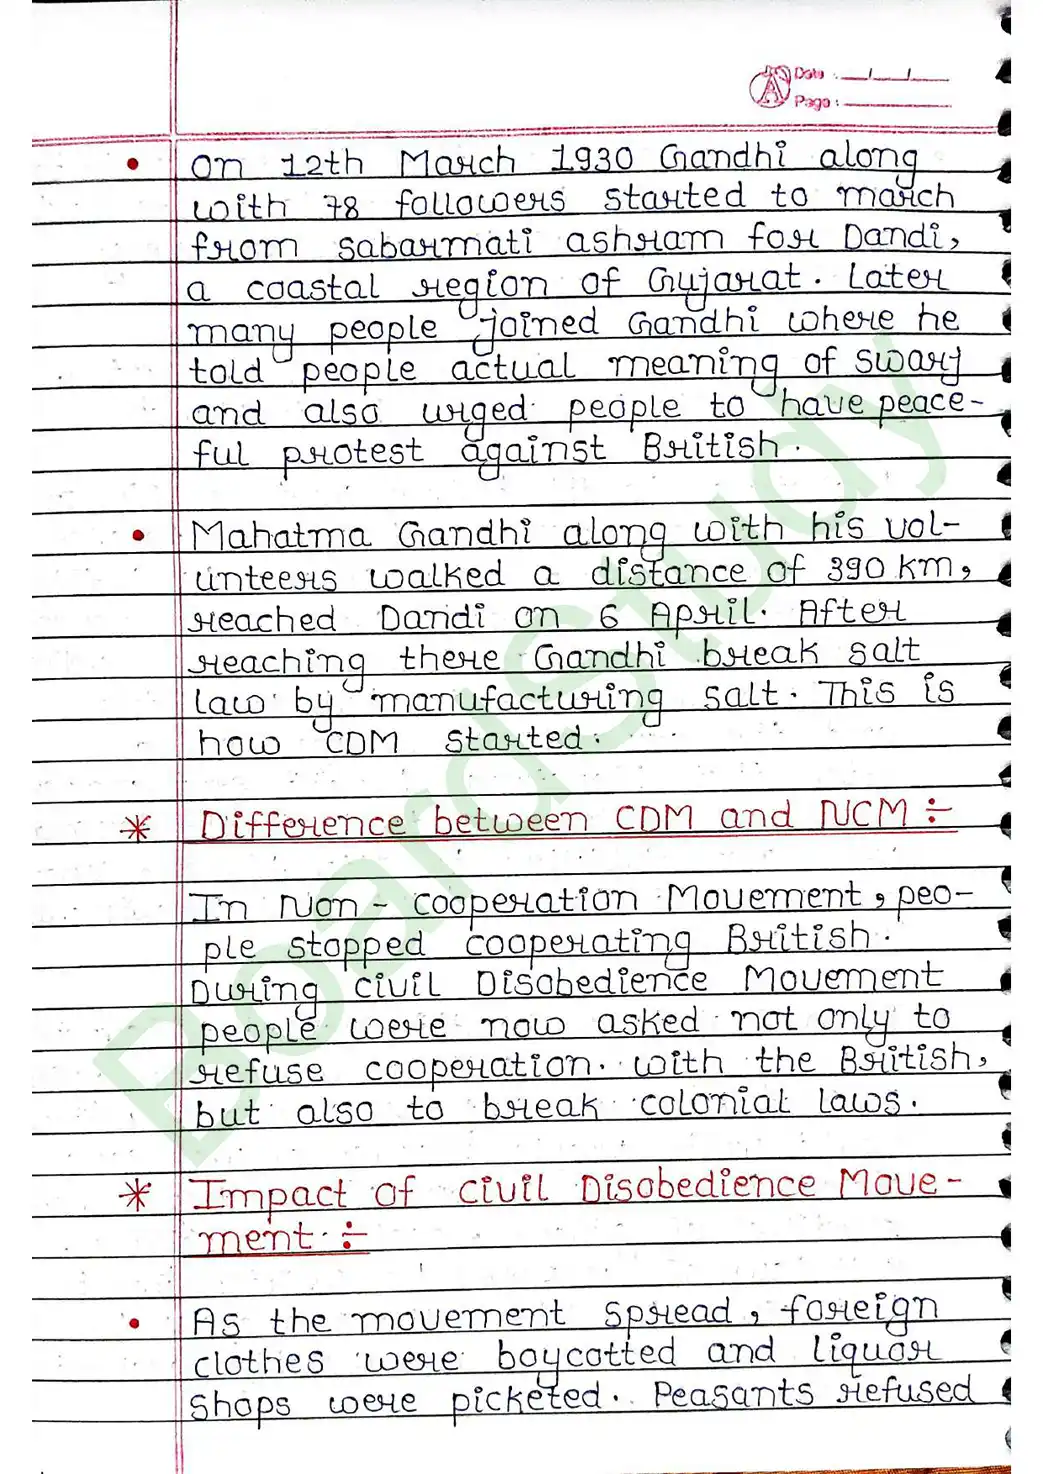 Date : __/__/__
Page :
• On 12th March 1930 Gandhi along
with 78 followers started to march
from sabarmati ashram for Dandi,
a coastal region of Gujarat. Later
many people joined Gandhi where he
told people actual meaning of swarj
and also urged people to have peace-
ful protest against British.
• Mahatma Gandhi along with his vol-
unteers walked a distance of 390 km,
reached Dandi on 6 April. After
reaching there Gandhi break salt
law by manufacturing salt. This is
how CDM started.
* Difference between CDM and NCM ÷
In Non - cooperation Movement, peo-
ple stopped cooperating British.
During civil Disobedience Movement
people were now asked not only to
refuse cooperation. with the British,
but also to break colonial laws.
* Impact of civil Disobedience Move-
ment ÷
• As the movement spread, foreign
clothes were boycotted and liquor
shops were picketed. Peasants refused
BoardStudy